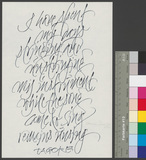 I have spent
my days
stringing and
unstringing
my instrument
while the song
I came to sing
remains unsung
TAGORE